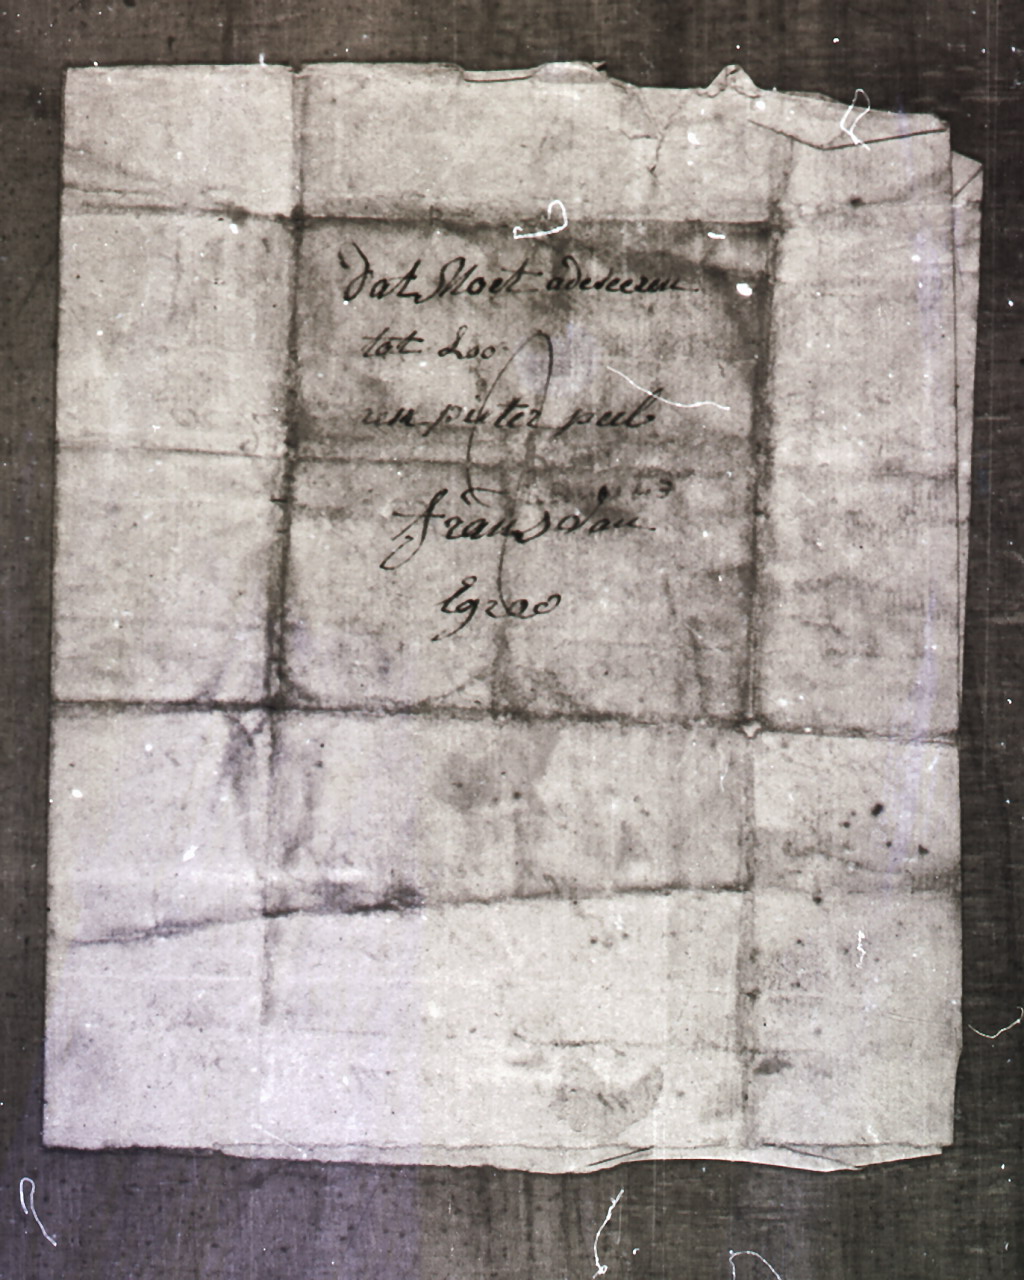 dat Moet adeseeren
tot Loo
un pieter peel
frans van
Egroo